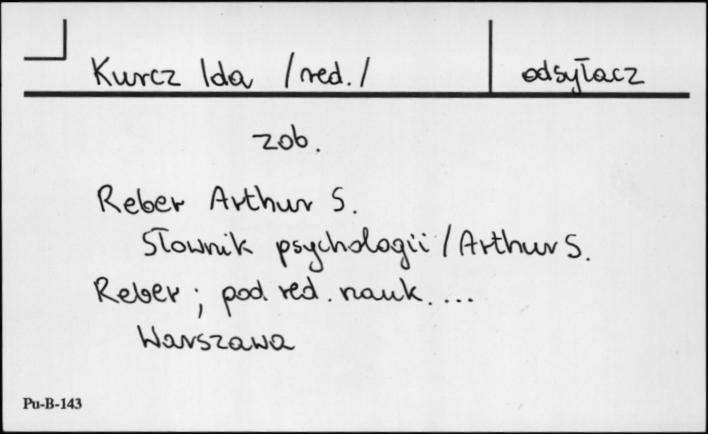 Kurcz Ida /red./ odsyłacz
zob.
Reber Arthur S.
Słownik psychologii / Arthur S.
Reber ; pod red. nauk. ...
Warszawa
Pu-B-143